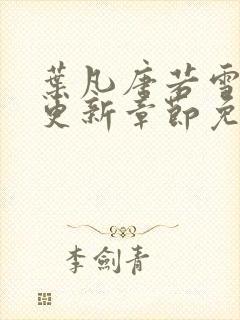 葉凡唐若雪
更新章節免
李劍青